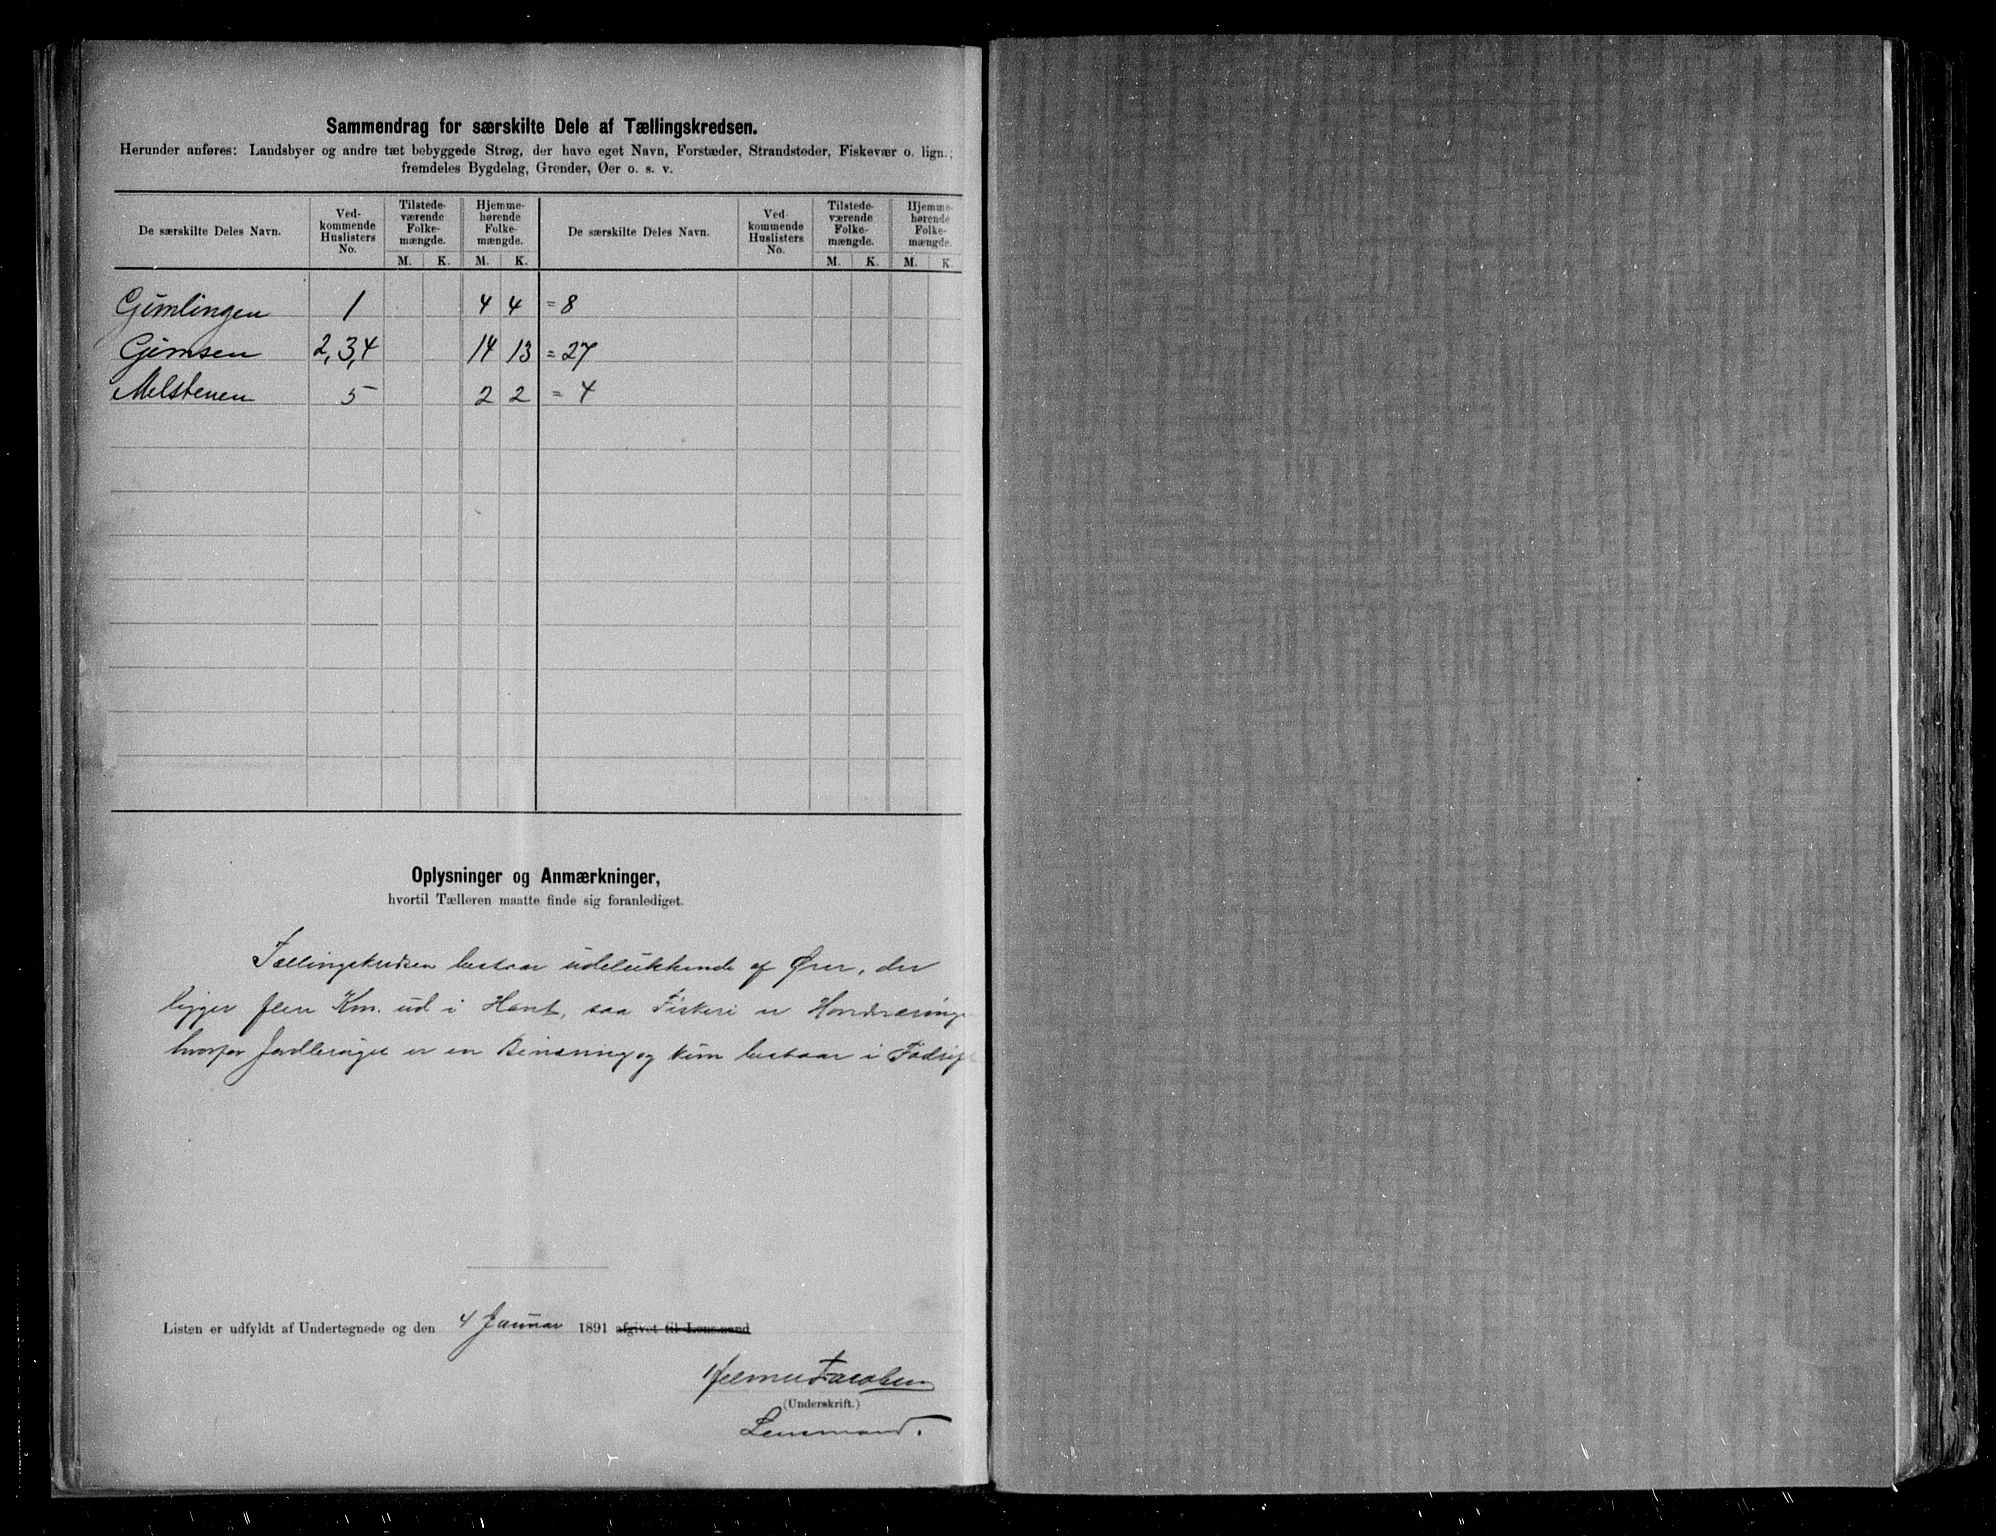 Sammendrag for særskilte Dele af Tællingskredsen.
Herunder anføres: Landsbyer og andre tæt bebyggede Strøg, der have eget Navn, Forstæder, Strandsteder, Fiskevær o. lign.;
fremdeles Bygdelag, Grender, Øer o. s. v.
De særskilte Deles Navn. Ved-kommende Huslisters No. Tilstede-værende Folke-mængde. Hjemme-hørende Folke-mængde. De særskilte Deles Navn. Ved-kommende Huslisters No. Tilstede-værende Folke-mængde. Hjemme-hørende Folke-mængde.
M. K. M. K. M. K. M. K.
Gimlingen 1 4 4 = 8
Gimsen 2,3,4 14 13 = 27
Melstenen 5 2 2 = 4
Oplysninger og Anmærkninger,
hvortil Tælleren maatte finde sig foranlediget.
Tællingskredsen bestaar udelukkende af Øer, der
ligger flere Km. ud i Havet, saa Fiskeri er Hovednæring
hvorfor Jordbruget er en Binæring og kun bestaar i
Listen er udfyldt af Undertegnede og den 4 Januar 1891 afgivet til Lensmand
Jacobsen
(Underskrift.)
Lensmand.